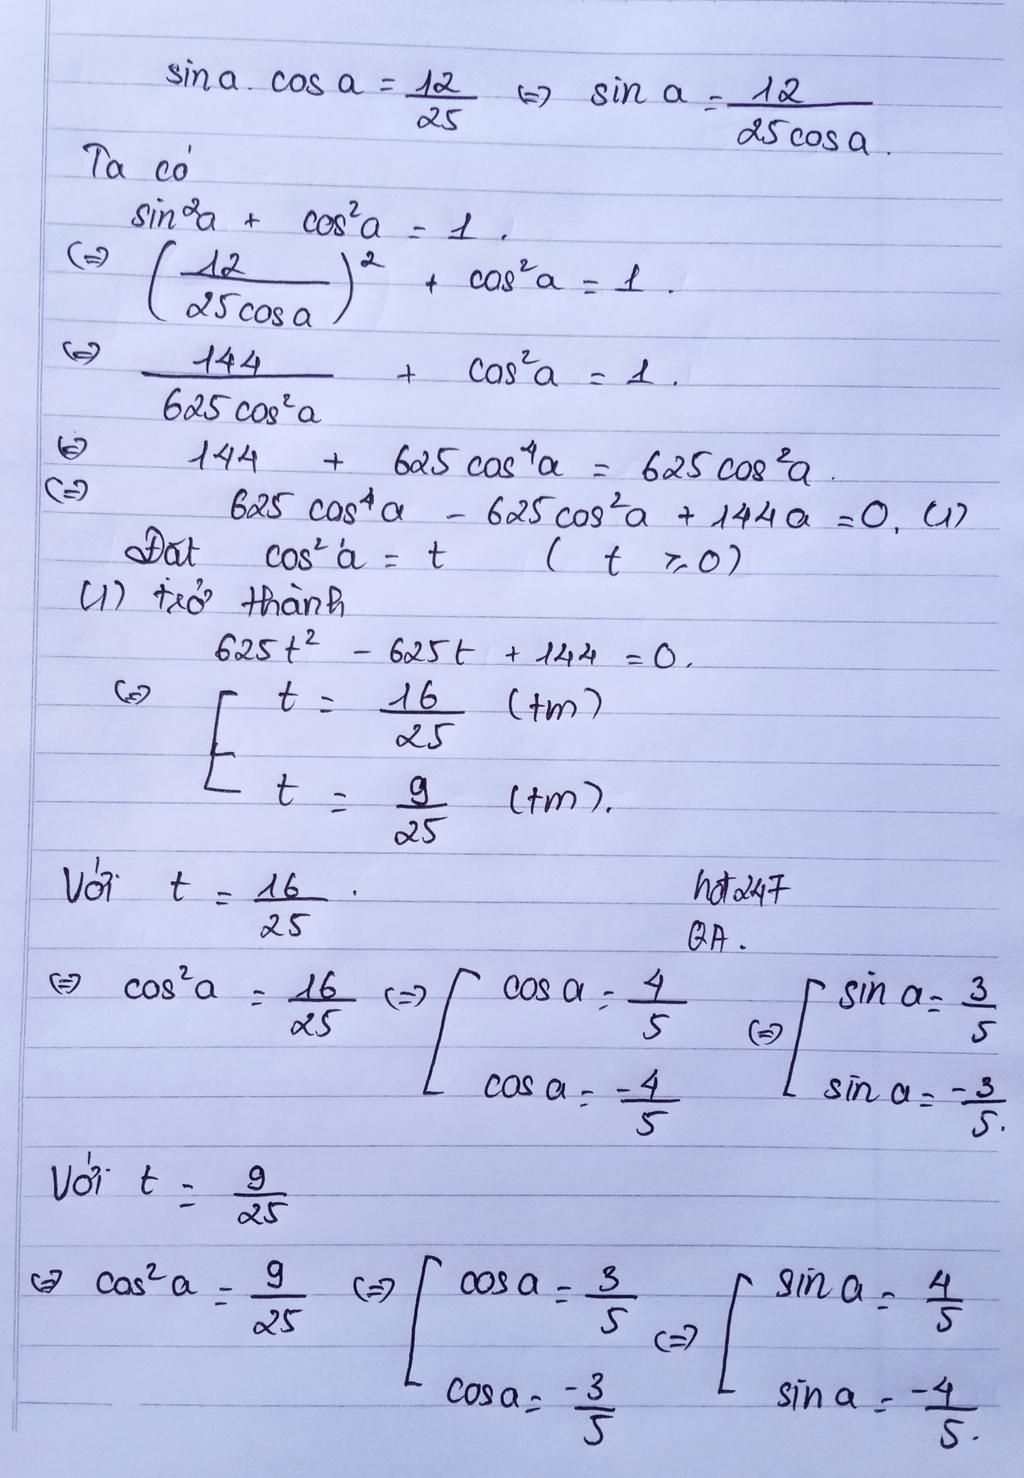 sin a. cos a = 12/25 (=) sin a = 12/(25 cos a).
Ta có
sin²a + cos²a = 1.
(=) (12/(25 cos a))² + cos²a = 1.
(=) 144/(625 cos²a) + cos²a = 1.
(=) 144 + 625 cos⁴a = 625 cos²a.
(=) 625 cos⁴a - 625 cos²a + 144a = 0. (1)
Đặt cos²a = t ( t ⩾ 0)
(1) trở thành
625t² - 625t + 144 = 0.
(=) [ t = 16/25 (tm)
t = 9/25 (tm).
Với t = 16/25.
hot247
QA.
(=) cos²a = 16/25 (=) [ cos a = 4/5 (=) [ sin a = 3/5
cos a = -4/5 sin a = -3/5.
Với t = 9/25
(=) cos²a = 9/25 (=) [ cos a = 3/5 (=) [ sin a = 4/5
cos a = -3/5 sin a = -4/5.